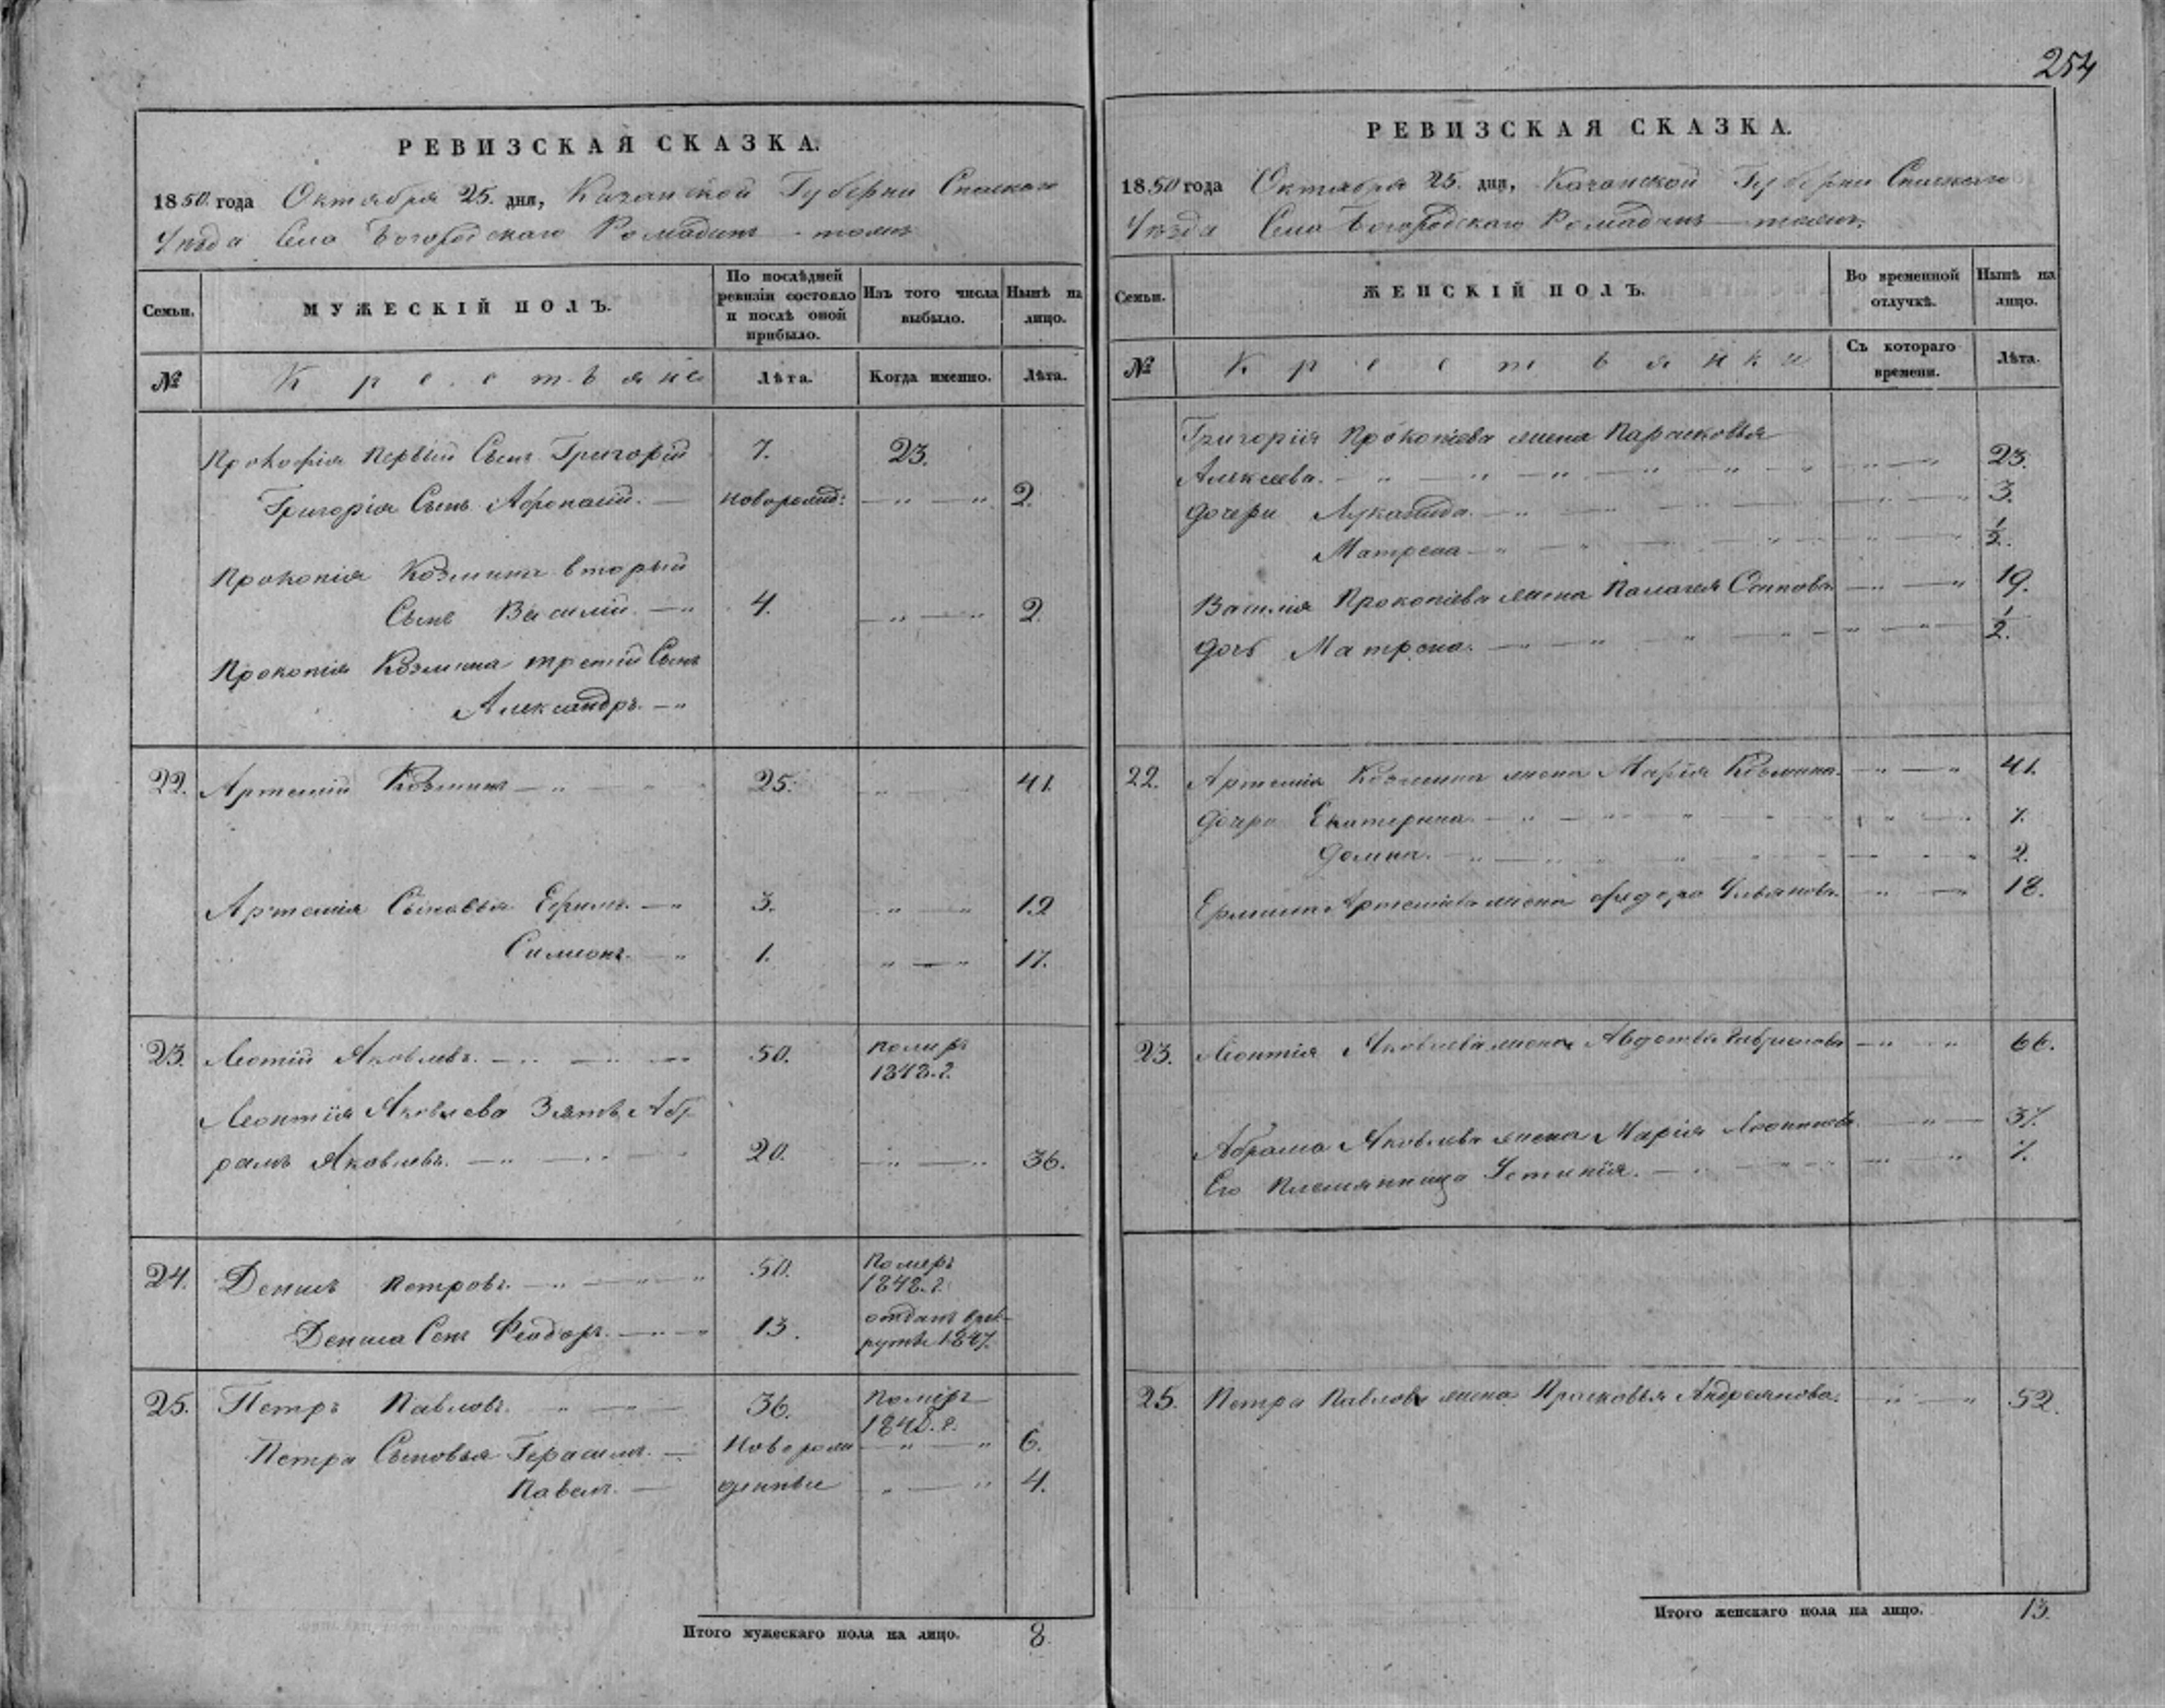 254
РЕВИЗСКАЯ СКАЗКА.
1850 года Октября 25. дня, Казанской Губерни Спаскаго
Уѣзда Села Богородскаго Ромадинъ тожъ
Семьи.
МУЖЕСКІЙ ПОЛЪ.
По послѣдней ревизіи состояло и послѣ оной прибыло.
Изъ того числа выбыло.
Нынѣ на лицо.
№
Крестьяне
Лѣта.
Когда именно.
Лѣта.
Прокофія первый Сынъ Григорій 7. 23.
Григорія Сынъ Афонасій. — новорожд: — " — " 2.
Прокопія Козмина вторый
Сынъ Василій. — " 4. — " — " 2.
Прокопія Козмина третій Сынъ
Александръ. — "
22. Артемій Козминъ — " 25. 41.
Артемія Сыновья Ефимъ. — " 3. 19
Симионъ. — " 1. " — " 17.
23. Леотій Яковлевъ. — " 50. померъ
1848. г.
Леонтія Яковлева Зять Аб
рамъ Яковлевъ. — " 20. — " — " 36.
24. Денисъ Петровъ. — " 50. Померъ
1848. г.
Дениса Сынъ Феодоръ. — " 13. отданъ врек-
руты 1847.
25. Петръ Павловъ. 36. Померъ
184 г.
Петра Сыновья Герасимъ. — Оворож — " — " 6.
Павелъ. — денные " — " 4.
Итого мужескаго пола на лицо. 8.
РЕВИЗСКАЯ СКАЗКА.
1850 года Октября 25. дня, Казанской Губерни Спаскаго
Уѣзда Села Богородскаго Ромадинъ — тожъ.
Семьи.
ЖЕНСКІЙ ПОЛЪ.
Во временной отлучкѣ.
Нынѣ на лицо.
№
Крестьянки
Съ котораго времени.
Лѣта.
Григорія Прокопіева жена Парасковья
Алексеева. — " 23.
Дочери 3.
Матрена — " 1/2.
Василія Прокопіева жена Палагея — " — " 19.
Дочь Матрена. — " 1/2.
22. Артемія Козмина жена Марія Козмина. — " — " 41.
Дочри Екатерина. — " 7.
Домна. — " 2.
Артемьева жена Федора Ульянова. — " — " 18.
23. Леонтія Яковлева жена Авдотья Гаврилова — " " 66.
Абрама Яковлева жена Марія Леонтьева — " — 37.
Его Племянница Устинія. — " 7.
25. Петра Павлова жена Прасковья Андреянова. — " — " 52.
Итого женскаго пола на лицо. 13.